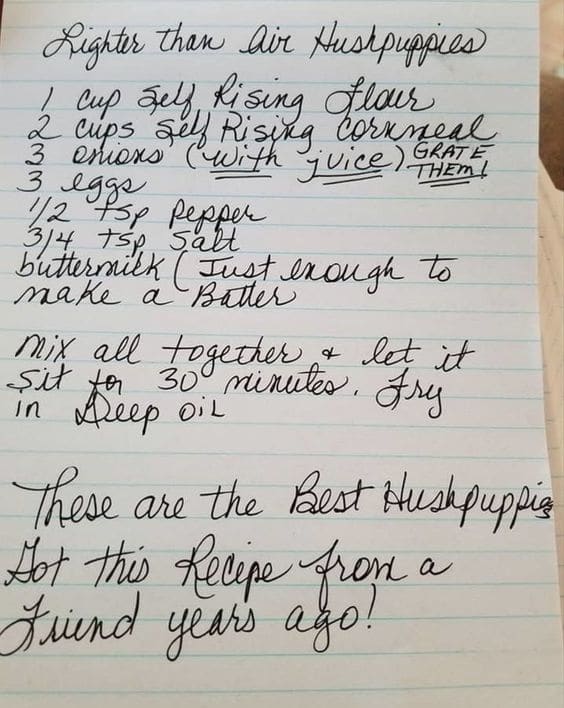 Lighter Than Air Hushpuppies
1 cup Self Rising Flour
2 cups Self Rising Cornmeal
3 onions (with juice) GRATE THEM!
3 eggs
1/2 tsp Pepper
3/4 tsp Salt
buttermilk (Just enough to
make a Batter
Mix all together & let it
Sit for 30 minutes. Fry
in Deep oil
These are the Best Hushpuppies
Got this Recipe from a
Friend years ago!